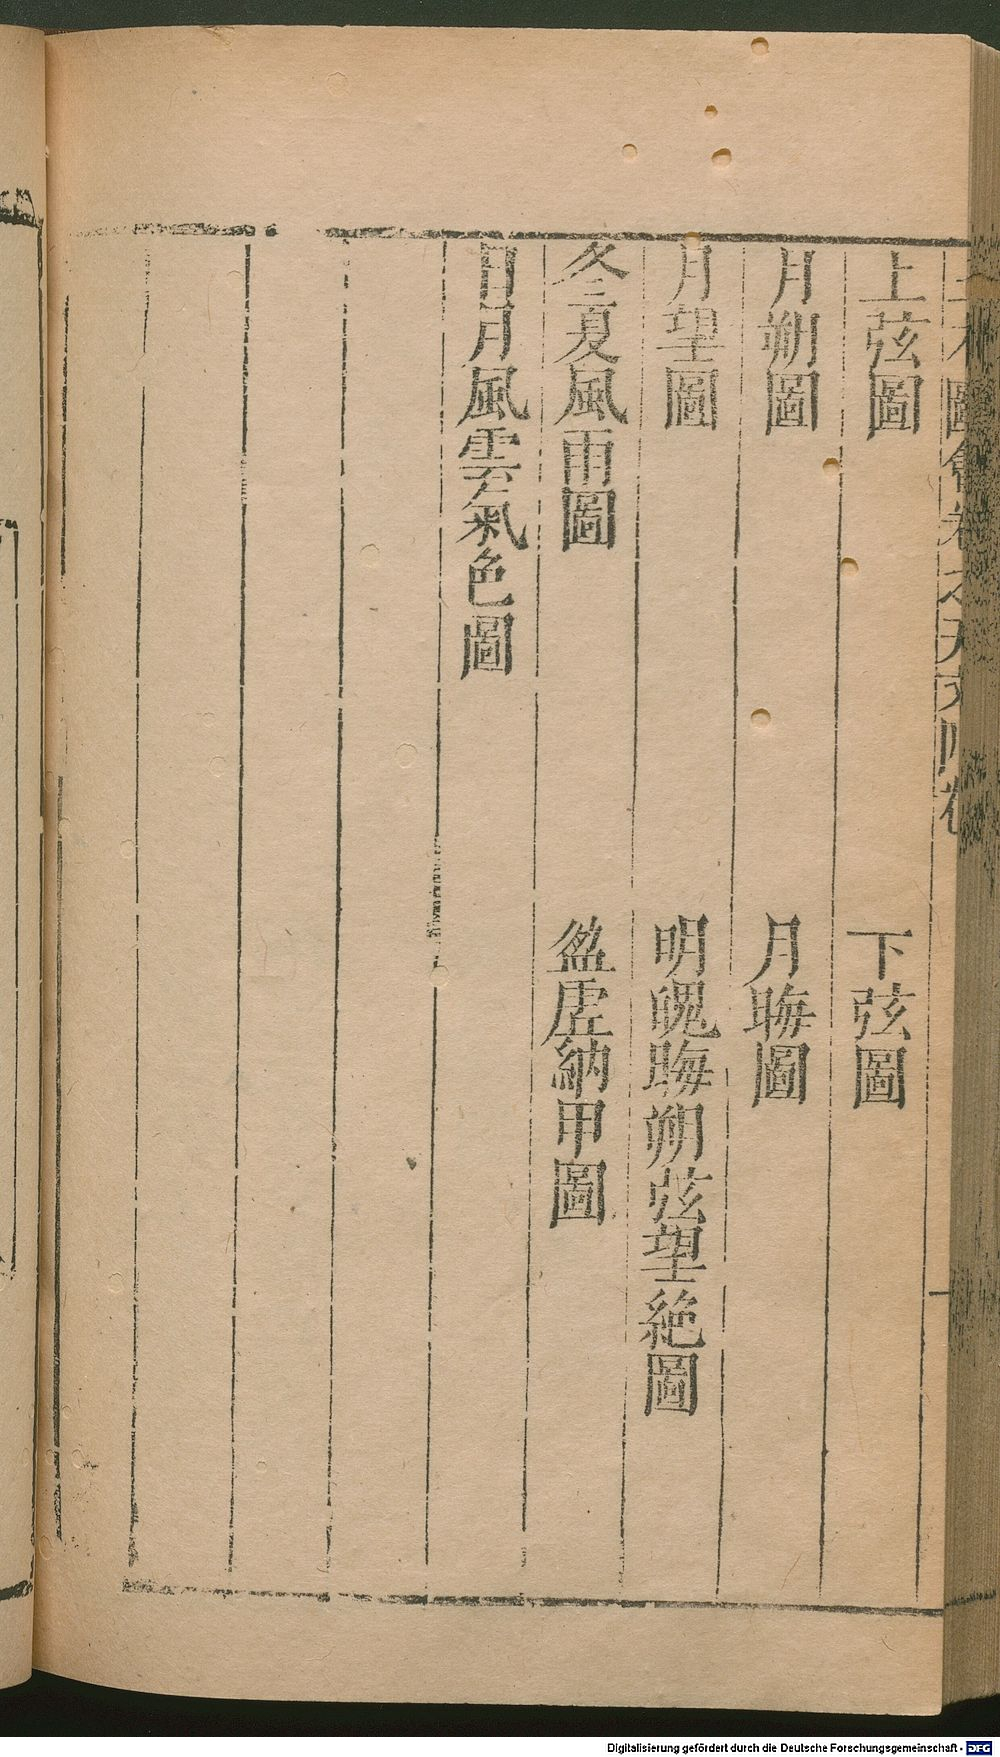 圖會卷之天文四卷
上弦圖
下弦圖
月朔圖
月晦圖
月望圖
明魄晦朔弦望絶圖
冬夏風雨圖
盈虛納甲圖
日月風雲氣色圖
Digitalisierung gefördert durch die Deutsche Forschungsgemeinschaft - DFG